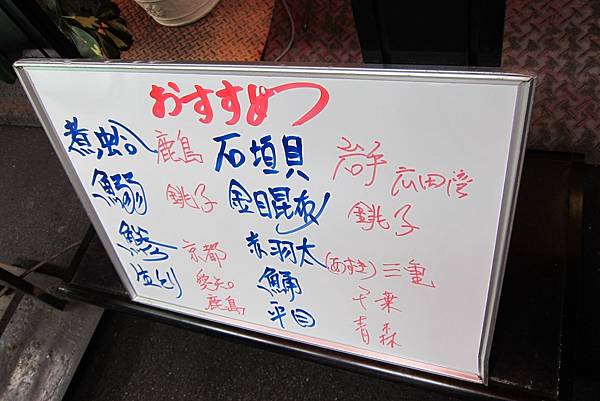 おすすめつ
煮蛤 鹿島 石垣貝 岩手 広田湾
鰯 銚子 金目昆布〆 銚子
鰺 京都 赤羽太(あずき) 三重
愛知 鯒 千葉
鹿島 平目 青森